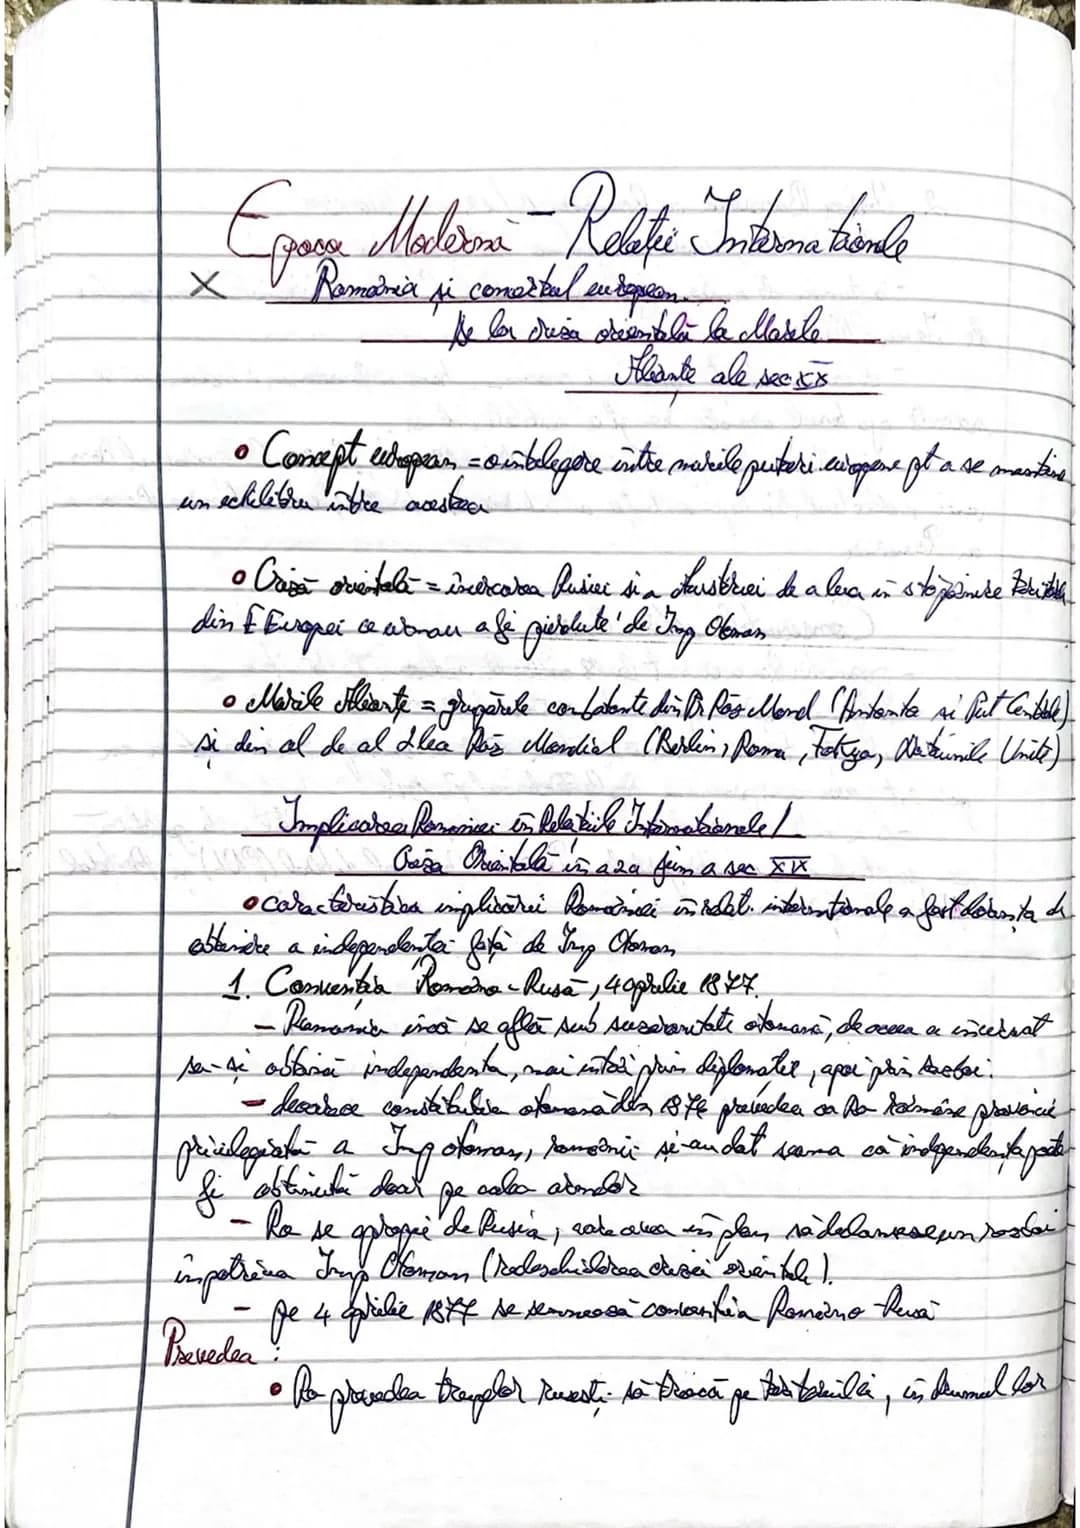 Epoca Modernă - Relații Internationale
X România și contextul european.
De la criza orientală la Marile
Aliante ale sec XX
• Concept european = o intelegere intre marile puteri europene pt a se mentine
un echilibru intre acestea
• Criză orientală = incercarea Rusiei si a Austriei de a lua in stăpânire
din E Europei ce urmau a fi pierdute de Imp Otoman
• Marile Aliante = grupările combatante din Pr Răz Mond (Antanta si Put Centrale)
si din al de al 2lea Răz Mondial (Berlin, Roma, Tokyo, Natiunile Unite)
Implicarea Romaniei in Relatiile Internationale /
Criza Orientală in a 2a jum a sec XIX
• caracteristica implicării României in relat. internationale a fost dorinta de
obtinere a independentei față de Imp Otoman
1. Conventia Româno-Rusă, 4 aprilie 1877.
- Romania incă se află sub suzeranitate otomană, de aceea a incercat
sa-si obtină independenta, mai intăi prin diplomatie, apoi prin razboi.
- deoarece constitutia otomană din 1876 prevedea ca Ro rămâne provincie
privilegiată a Imp otoman, românii și-au dat seama că independenta poate
fi obtinută doar pe calea armelor
- Ro se apropie de Rusia, care avea in plan să declanseze un razboi
impotriva Imp Otoman (redeschiderea crizei orientale).
- pe 4 aprilie 1877 se semnează conventia Româno-Rusă
Prevedea:
• Ro prevedea trupelor rusești să treacă pe teritoriul ei, in drumul lor